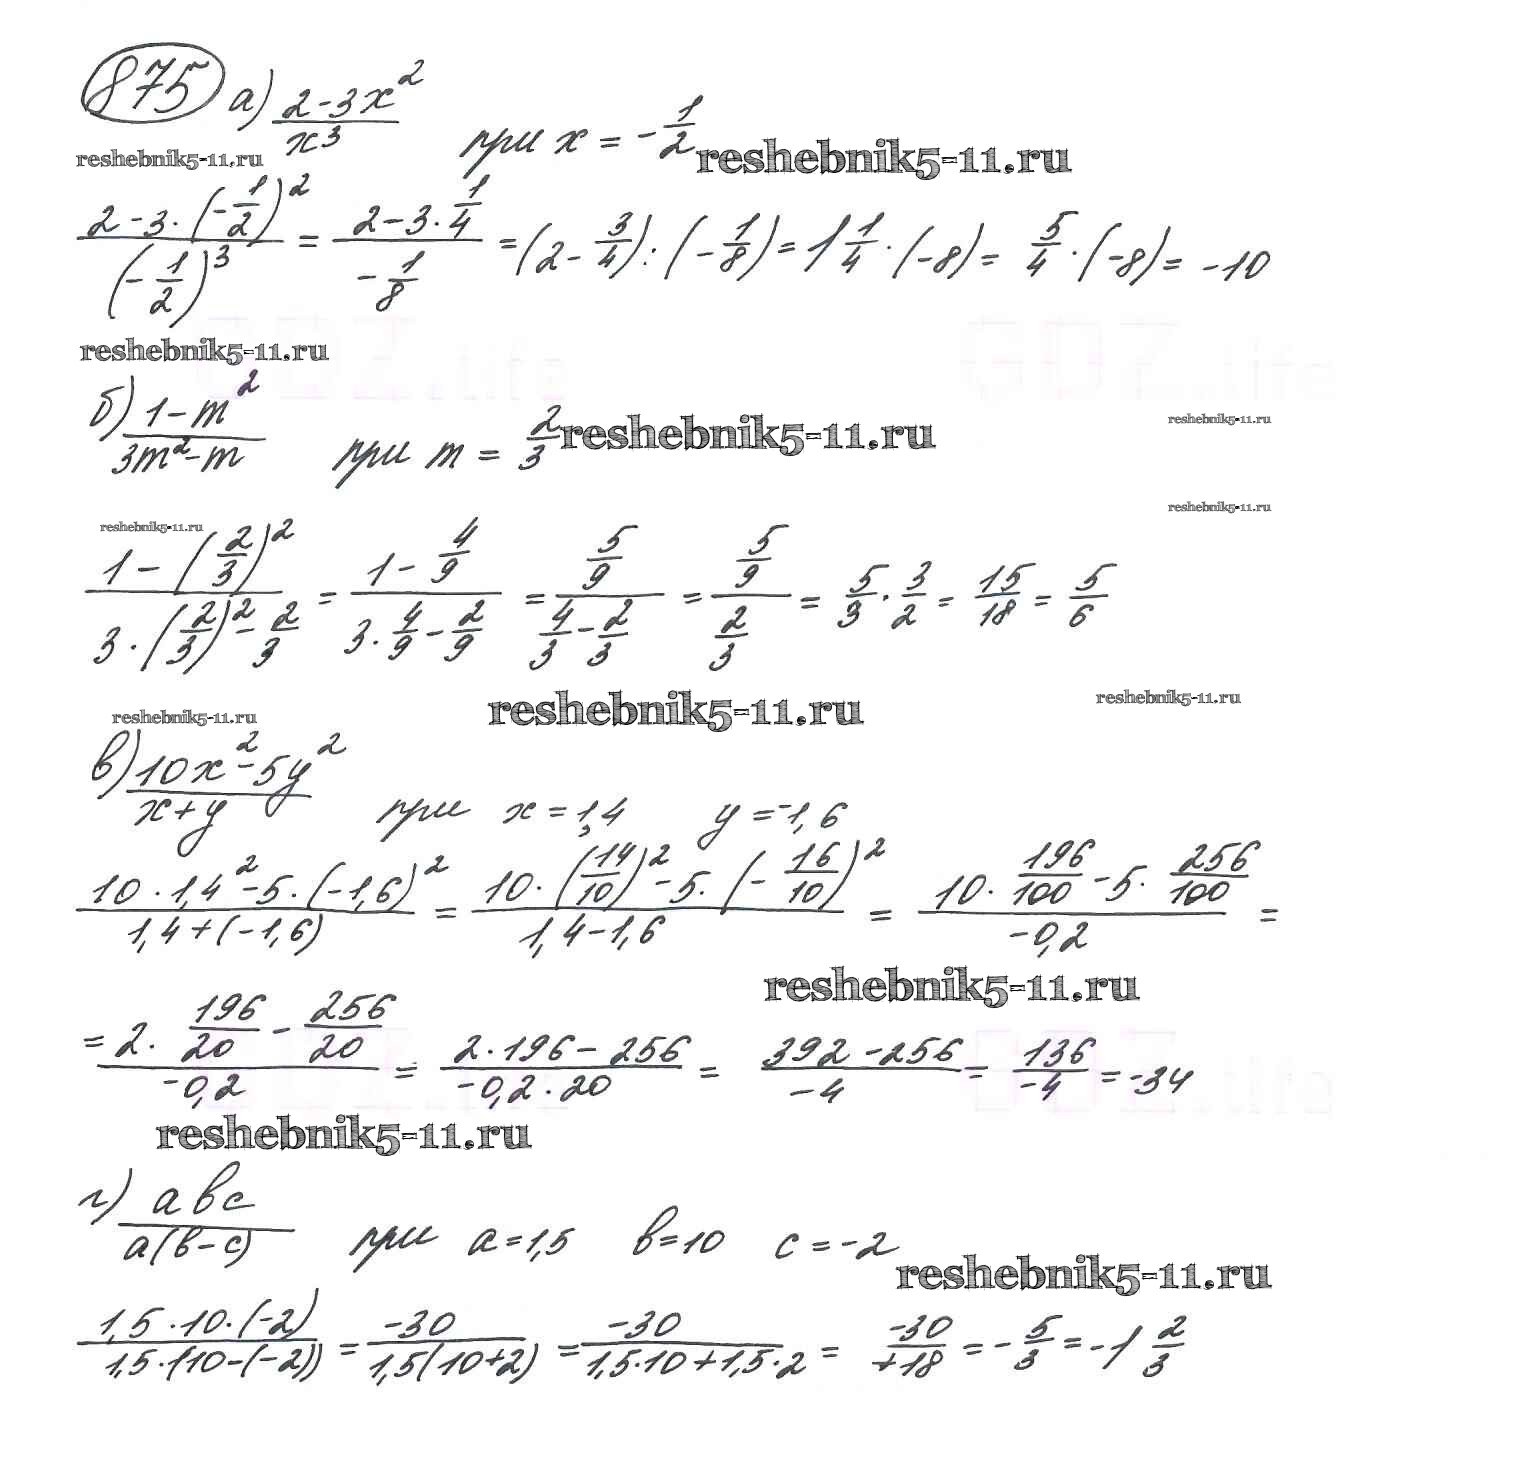 875 а) (2-3x²)/x³ при x = -1/2
reshebnik5-11.ru reshebnik5-11.ru
(2-3·(-1/2)²)/(-1/2)³ = (2-3·1/4)/(-1/8) = (2-3/4):(-1/8) = 1 1/4·(-8) = 5/4·(-8) = -10
GDZ.life GDZ.life
reshebnik5-11.ru
б) (1-m²)/(3m²-m) при m = 2/3
reshebnik5-11.ru reshebnik5-11.ru
reshebnik5-11.ru reshebnik5-11.ru
(1-(2/3)²)/(3·(2/3)²-2/3) = (1-4/9)/(3·4/9-2/9) = (5/9)/(4/3-2/3) = (5/9)/(2/3) = 5/9·3/2 = 15/18 = 5/6
reshebnik5-11.ru reshebnik5-11.ru reshebnik5-11.ru
в) (10x²-5y²)/(x+y) при x = 1,4 y = -1,6
(10·1,4²-5·(-1,6)²)/(1,4+(-1,6)) = (10·(14/10)²-5·(-16/10)²)/(1,4-1,6) = (10·196/100-5·256/100)/(-0,2) =
reshebnik5-11.ru
= (2·196/20-256/20)/(-0,2) = (2·196-256)/(-0,2·20) = (392-256)/(-4) = 136/(-4) = -34
GDZ.life GDZ.life
reshebnik5-11.ru
г) авс/(а(в-с)) при а=1,5 в=10 с=-2
reshebnik5-11.ru
(1,5·10·(-2))/(1,5·(10-(-2))) = -30/(1,5(10+2)) = -30/(1,5·10+1,5·2) = -30/(+18) = -5/3 = -1 2/3